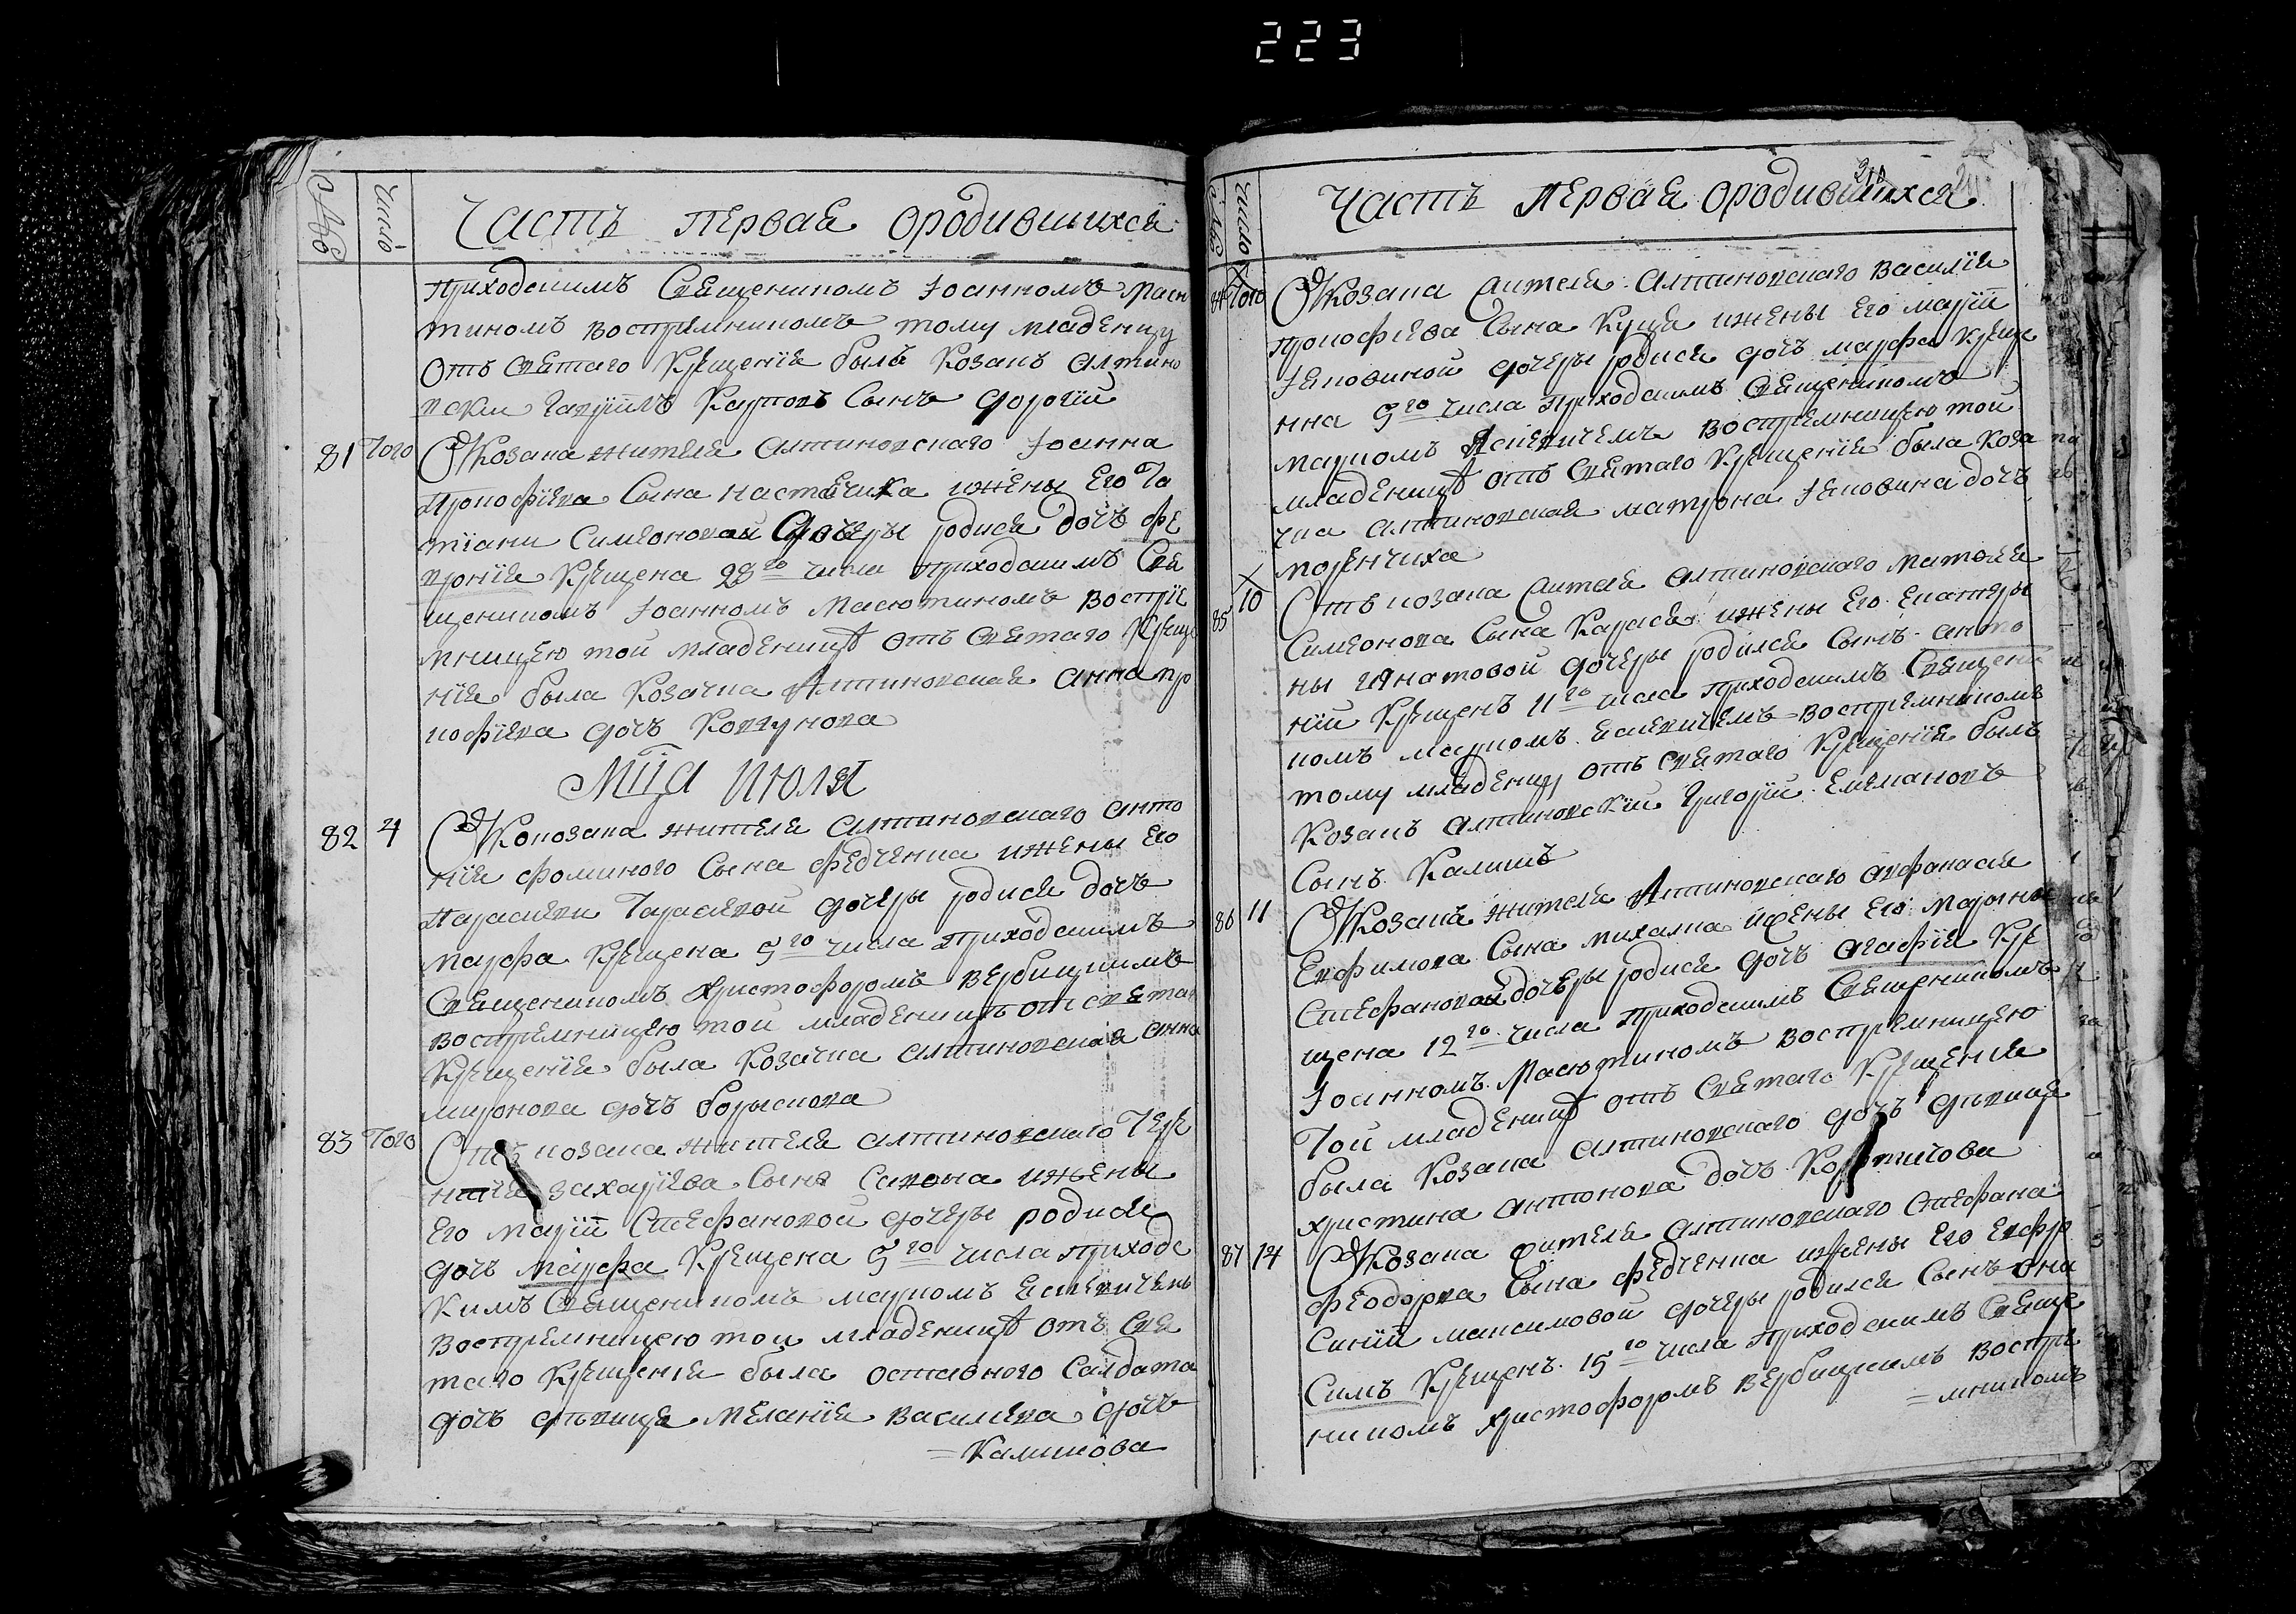 223
Число
Часть первая ородившихся
приходскимъ Священникомъ Іоанномъ Масю
тиномъ восприемникомъ тому младенцу
отъ святаго Крещенія былъ Козакъ Алтино
вски Гавріилъ Карповъ Сынъ Дорогій
81 Того
Отъ Козака жителя Алтиновскаго Іоанна
Прокофіева Сына Настачика ижены Его Та
тіани Симеоновой Дочеры родися дочъ фе
вронія Крещена 28го числа приходскимъ Свя
щенникомъ Іоанномъ Масютиномъ воспріе
мницею той младеницѣ отъ святаго Креще
нія была Козачка Алтиновская Анна про
кофіева дочъ Ковтунова
Мца июля
82 4
Отъ Козака жителя Алтиновскаго Анто
нія Фоминого Сына Федченка ижены Его
Параскеви Тарасиевой дочеры родися дочъ
Марфа Крещена 5го числа приходскимъ
Священникомъ Христофоромъ Вербицкимъ
восприемницею той младеницѣ отъ святаг
Крещенія была Козачка Алтиновская Анна
миронова дочъ Борыскова
83 Того
Отъ козака жителя Алтиновскаго Тере
Захаріева Сына Савона ижены
Его Маріи Стефановой дочеры родися
дочъ Марфа Крещена 5го числа приходс
кимъ Священникомъ маркомъ Есиевичемъ
восприемницею той младеницѣ отъ Свя
таго Крещенія была отставного Салдата
дочъ дѣвица Меланія Василіева дочъ
=Калишова
Число
210
Часть первая ородившихся
84 Того
Отъ Козака жителя Алтиновскаго Василія
прокофіева Сына Куца ижены Его Маріи
Іаковиной дочеры родися дочъ марфа Креще
нна 5го числа приходскимъ Священникомъ
маркомъ Есиевичемъ восприемницею той
младеницѣ отъ Святаго Крещенія была Коза
чка Алтиновская матрона Іаковина дочъ
моренчиха
85 10
Отъ козака жителя Алтиновскаго Матфея
Симеонова Сына Карася ижены Его Екатеры
ны Игнатовой дочеры родился Сынъ Анто
ній Крещенъ 11го числа приходскимъ Священи
комъ маркомъ Есиевичемъ восприемникомъ
тому младенцу отъ святаго Крещенія былъ
Козакъ Алтиновскій Григорій Емелиановъ
Сынъ Калишъ
86 11
Отъ Козака жителя Алтиновскаго Афанасія
Евфимова Сына михалка ижены Его Марины
Стефановой дочеры родися дочъ Агафія Кре
щена 12го числа приходскимъ Священникомъ
Іоанномъ Масютиномъ восприемницею
Той младеницѣ отъ Святаго Крещенія
была Козака Алтиновскаго дочъ дѣвица
христина Антонова дочъ
87 14
Отъ Козака жителя Алтиновскаго Стефана
Феодорва Сына Федченка ижены Его Евфро
синіи Максимовой дочеры родился Сынъ Они
симъ Крещенъ 15го числа приходскимъ Свяще
никомъ Христофоромъ Вербицкимъ воспрі
=мникомъ